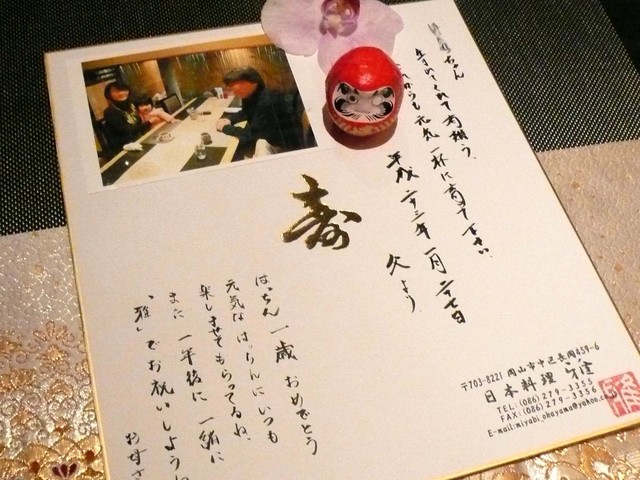 ちゃん
生まれてくれて有難う、
これからも元気一杯に育って下さい。
平成二十三年一月二十七日
父より、
寿
はっちん 一歳 おめでとう
元気なはっちんにいつも
楽しませてもらってるね、
また 一年後に 一緒に
「雅」でお祝いしようね
お母さ
〒703-8221 岡山市中区長岡459-6
日本料理 雅
TEL:(086)279-3355
FAX:(086)279-3356
E-mail:miyabi_okayama@yahoo.c
雅